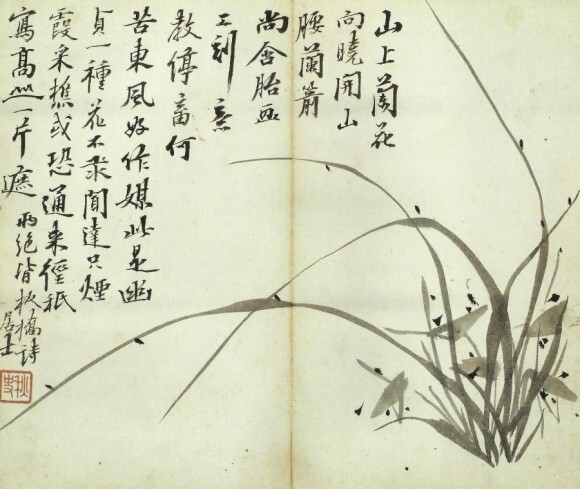 山上蘭花
向曉開山
腰蘭箭
尚含胎画
工刻意
教停畜何
苦東風好作媒此是幽
貞一種花不求聞達只煙
霞采樵或恐通来徑秖
寫高山一片遮 兩絕皆板橋詩
居士